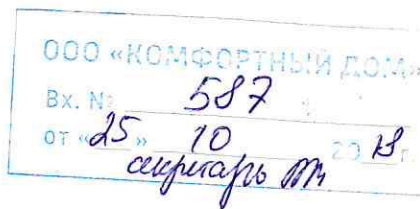 ООО «КОМФОРТНЫЙ ДОМ»
Вх. № 587
от «25» 10 2013 г
секретарь